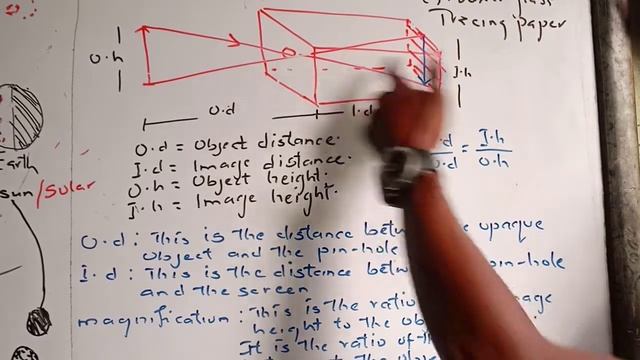 Tracing paper
O.h
I.h
O.d
I.d
O.d = Object distance.
I.d = Image distance.
O.h = Object height.
I.h = Image height.
.d = I.h
O.d O.h
Earth
Sun/Solar
O.d : This is the distance between the opaque
object and the pin-hole
I.d : This is the distance betw pin-hole
and the screen
magnification : This is the ratio image
height to the ob
It is the ratio of th